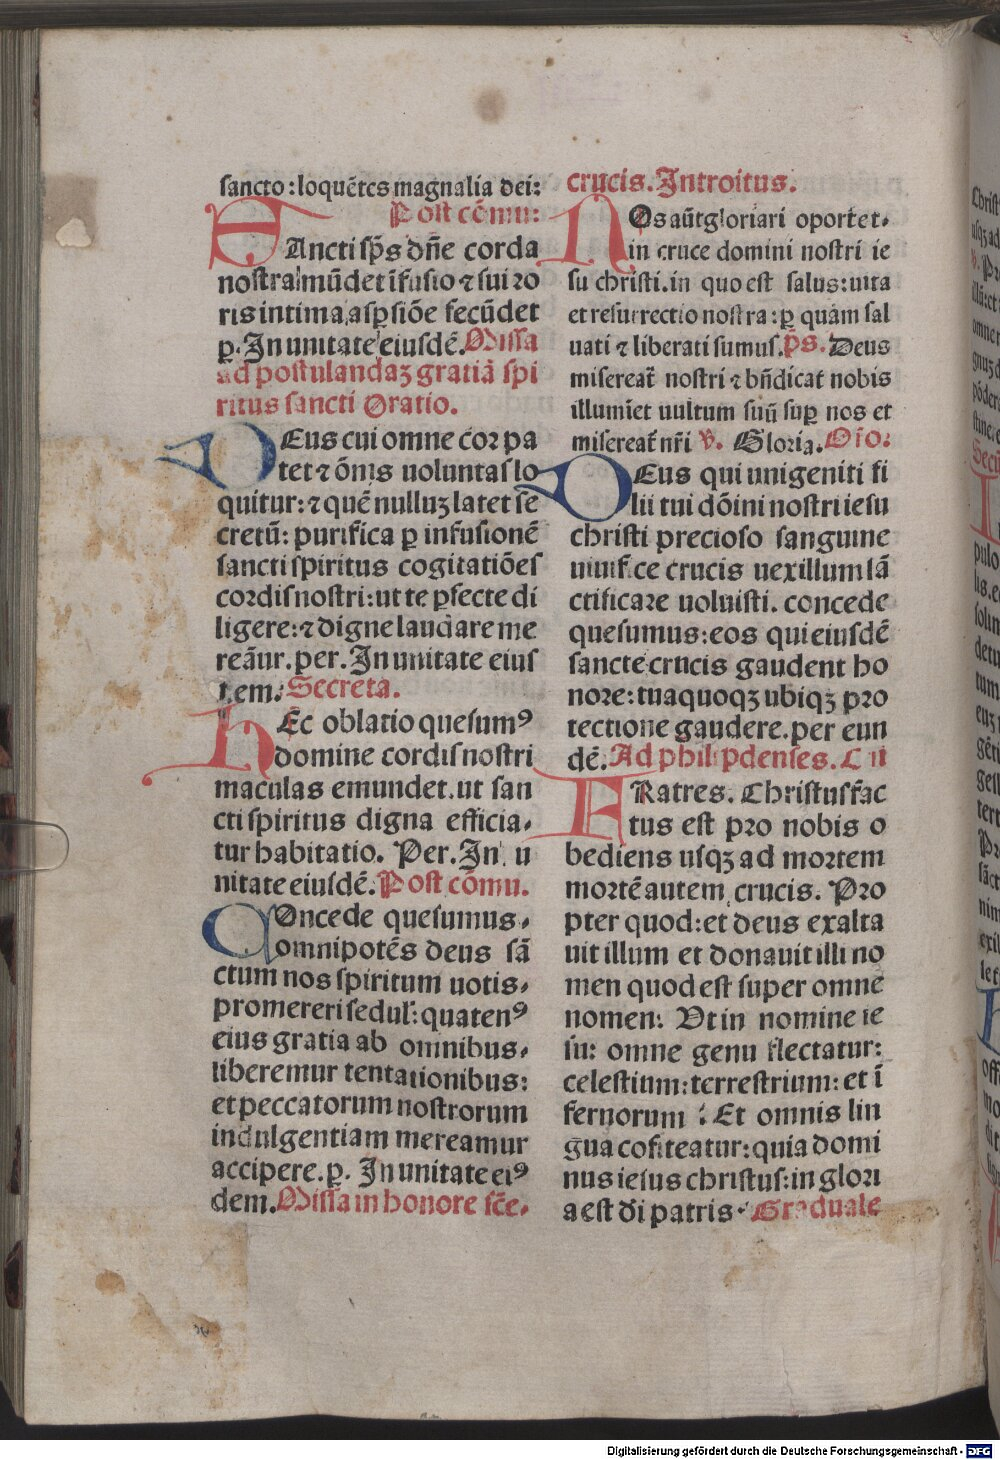 sancto:loquētes magnalia dei:
Post cōmu:
SAncti sp̄s dn̄e corda
nostra mūdet īfusio ⁊ sui ro
ris intima asꝑsiōe fecūdet
ꝑ. In unitate eiusdē. Missa
ad postulandaꝫ gratiā spi
ritus sancti Oratio.
DEus cui omne cor pa
tet ⁊ ōnis uoluntas lo
quitur:⁊ quē nulluꝫ latet se
cretū: purifica ꝑ infusionē
sancti spiritus cogitatiōes
cordis nostri:ut te ꝑfecte di
ligere:⁊ digne laudare me
reāur. per. In unitate eius
dem. Secreta.
HEc oblatio quesumꝰ
domine cordis nostri
maculas emundet.ut san
cti spiritus digna efficia-
tur habitatio. Per. In u
nitate eiusdē. Post cōmu.
COncede quesumus,
omnipotēs deus sā
ctum nos spiritum uotis,
promereri sedul':quatenꝰ
eius gratia ab omnibus,
liberemur tentationibus:
et peccatorum nostrorum
indulgentiam mereamur
accipere. ꝑ. In unitate eiꝰ
dem. Missa in honore sc̄e,
crucis. Introitus.
NOs aūt gloriari oportet,
in cruce domini nostri ie
su christi.in quo est salus:uita
et resurrectio nostra:ꝑ quam sal
uati ⁊ liberati sumus. p̄s. Deus
misereat̄ nostri ⁊ bn̄dicat nobis
illumīet uultum suū suꝑ nos et
misereat̄ nr̄i ℣. Gloria. Or̄o:
DEus qui unigeniti fi
lii tui dōini nostri iesu
christi precioso sanguine
uiuificę crucis uexillum sā
ctificare uoluisti. concede
quesumus:eos qui eiusdē
sancte crucis gaudent ho
nore:tua quoqꝫ ubiqꝫ pro
tectione gaudere. per eun
dē. Ad philipdenses. C ii
FRatres. Christus fac
tus est pro nobis o
bediens usqꝫ ad mortem
mortē autem crucis. Pro
pter quod:et deus exalta
uit illum et donauit illi no
men quod est super omne
nomen: Ut in nomine ie
su: omne genu flectatur:
celestium:terrestrium:et ī
fernorum : Et omnis lin
gua cōfiteatur:quia domi
nus iesus christus:in glori
a est di patris. Graduale
Digitalisierung gefördert durch die Deutsche Forschungsgemeinschaft - DFG